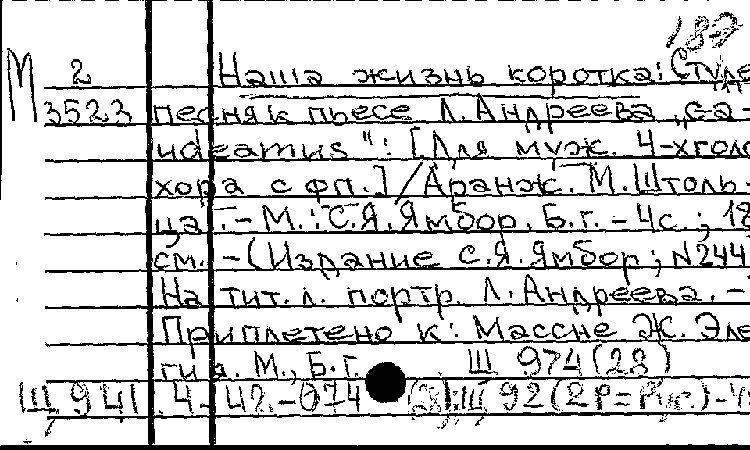 187
М 2 Наша жизнь коротка: Студе
3523 песня к пьесе Л. Андреева „Ga-
udeamus": [Для муж. 4-хголо
хора с фп.] / Аранж. М. Штоль-
ца. - М.: С.Я. Ямбор, Б.г. - 4с.; 18
см. - (Издание С.Я. Ямбор; N244
На тит. л. портр. Л. Андреева. -
Приплетено к: Массне Ж. Эле
гия. М., Б.г. Щ 974(28)
Щ 941.4-42.-074 (28); Щ 92(2Р=Рус.)-4